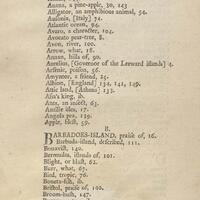 Anana, a pine-apple, 30, 143
Alligator, an amphibious animal, 54.
Ausonia, [Italy] 74.
Atlantic ocean, 94.
Avaro, a character, 104.
Avocato pear-tree, 8.
Avon, river, 100.
Arrow, what, 18.
Annan, hills of, 90.
Aurelius, [Governor of the Leeward islands] 4.
Arsenic, poison, 56.
Amyntor, a friend, 25.
Albion, [England] 134, 141, 149.
Attic land, [Athens] 132.
Asia's king, ib.
Ants, an insect, 63.
Ausible isles, 17.
Angola pea, 139.
Apple, blest, 59.
B.
BARBADOES-ISLAND, praise of, 16.
Barbuda-island, described, 111.
Bonavist, 140.
Bermudas, islands of, 101.
Blight, or blast, 62.
Burr, what, 67.
Bird, tropic, 76.
Boneta-fish, ib.
Bristol, praise of, 100.
Broom-bush, 147.